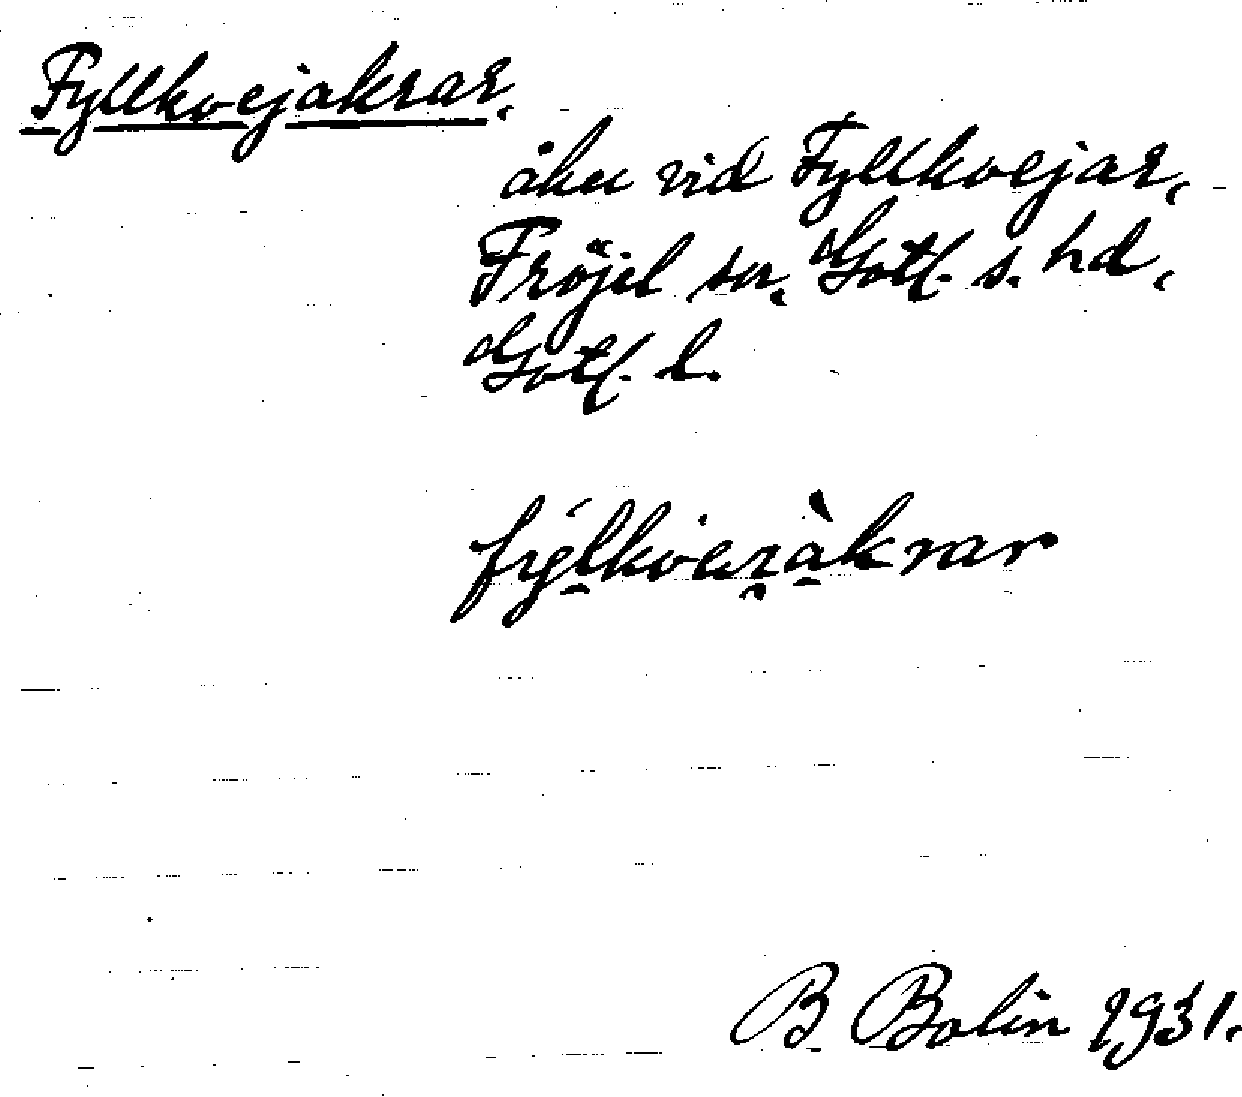 Fyllkvejakrar.
åker vid Fyllkvejar,
Fröjel sn. Gotl. s. hd,
Gotl. l.
fýlkvei̯àkrar
B Bolin 1931.